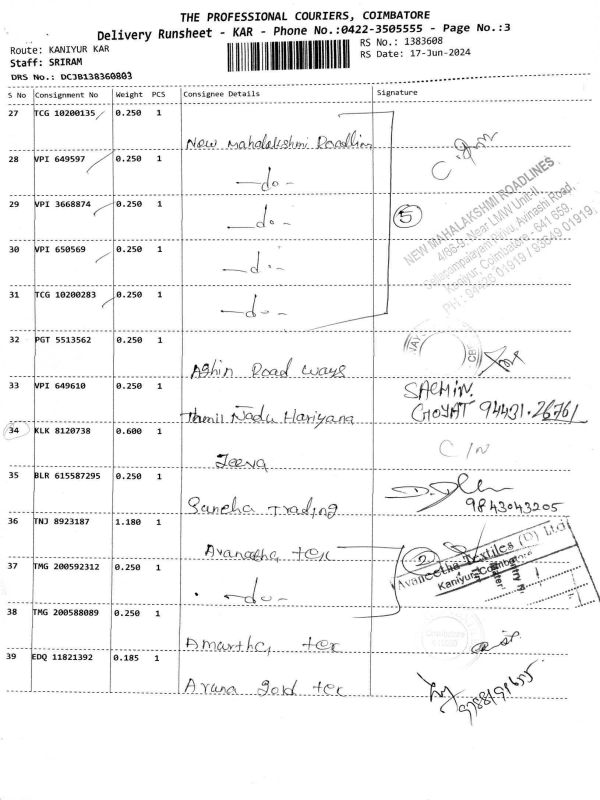 THE PROFESSIONAL COURIERS, COIMBATORE
Delivery Runsheet - KAR - Phone No.:0422-3505555 - Page No.:3
Route: KANIYUR KAR
RS No.: 1383608
Staff: SRIRAM
RS Date: 17-Jun-2024
DRS No.: DCJB138360803
S No Consignment No Weight PCS Consignee Details Signature
27 TCG 10200135 0.250 1
New Mahalakshmi Roadlines
28 VPI 649597 0.250 1
-do-
29 VPI 3668874 0.250 1
-do-
5
NEW MAHALAKSHMI ROADLINES
4/66-9, Near LMW Unit-II,
Avinashi Road,
Kaniyur, Coimbatore - 641 659.
30 VPI 650569 0.250 1
-do-
31 TCG 10200283 0.250 1
-do-
32 PGT 5513562 0.250 1
Road ways
33 VPI 649610 0.250 1
SACHIN.
GOYAT 94431.26761
Tamil Nadu Hariyana
34 KLK 8120738 0.600 1
Jeeva
C/N
35 BLR 615587295 0.250 1
Trading
9843043205
36 TNJ 8923187 1.180 1
Avaneetha tex
2
Avaneetha Textiles (P) Ltd
Kaniyur, Coimbatore
37 TMG 200592312 0.250 1
-do-
38 TMG 200588089 0.250 1
Amartha tex
39 EDQ 11821392 0.185 1
Aruna Gold tex